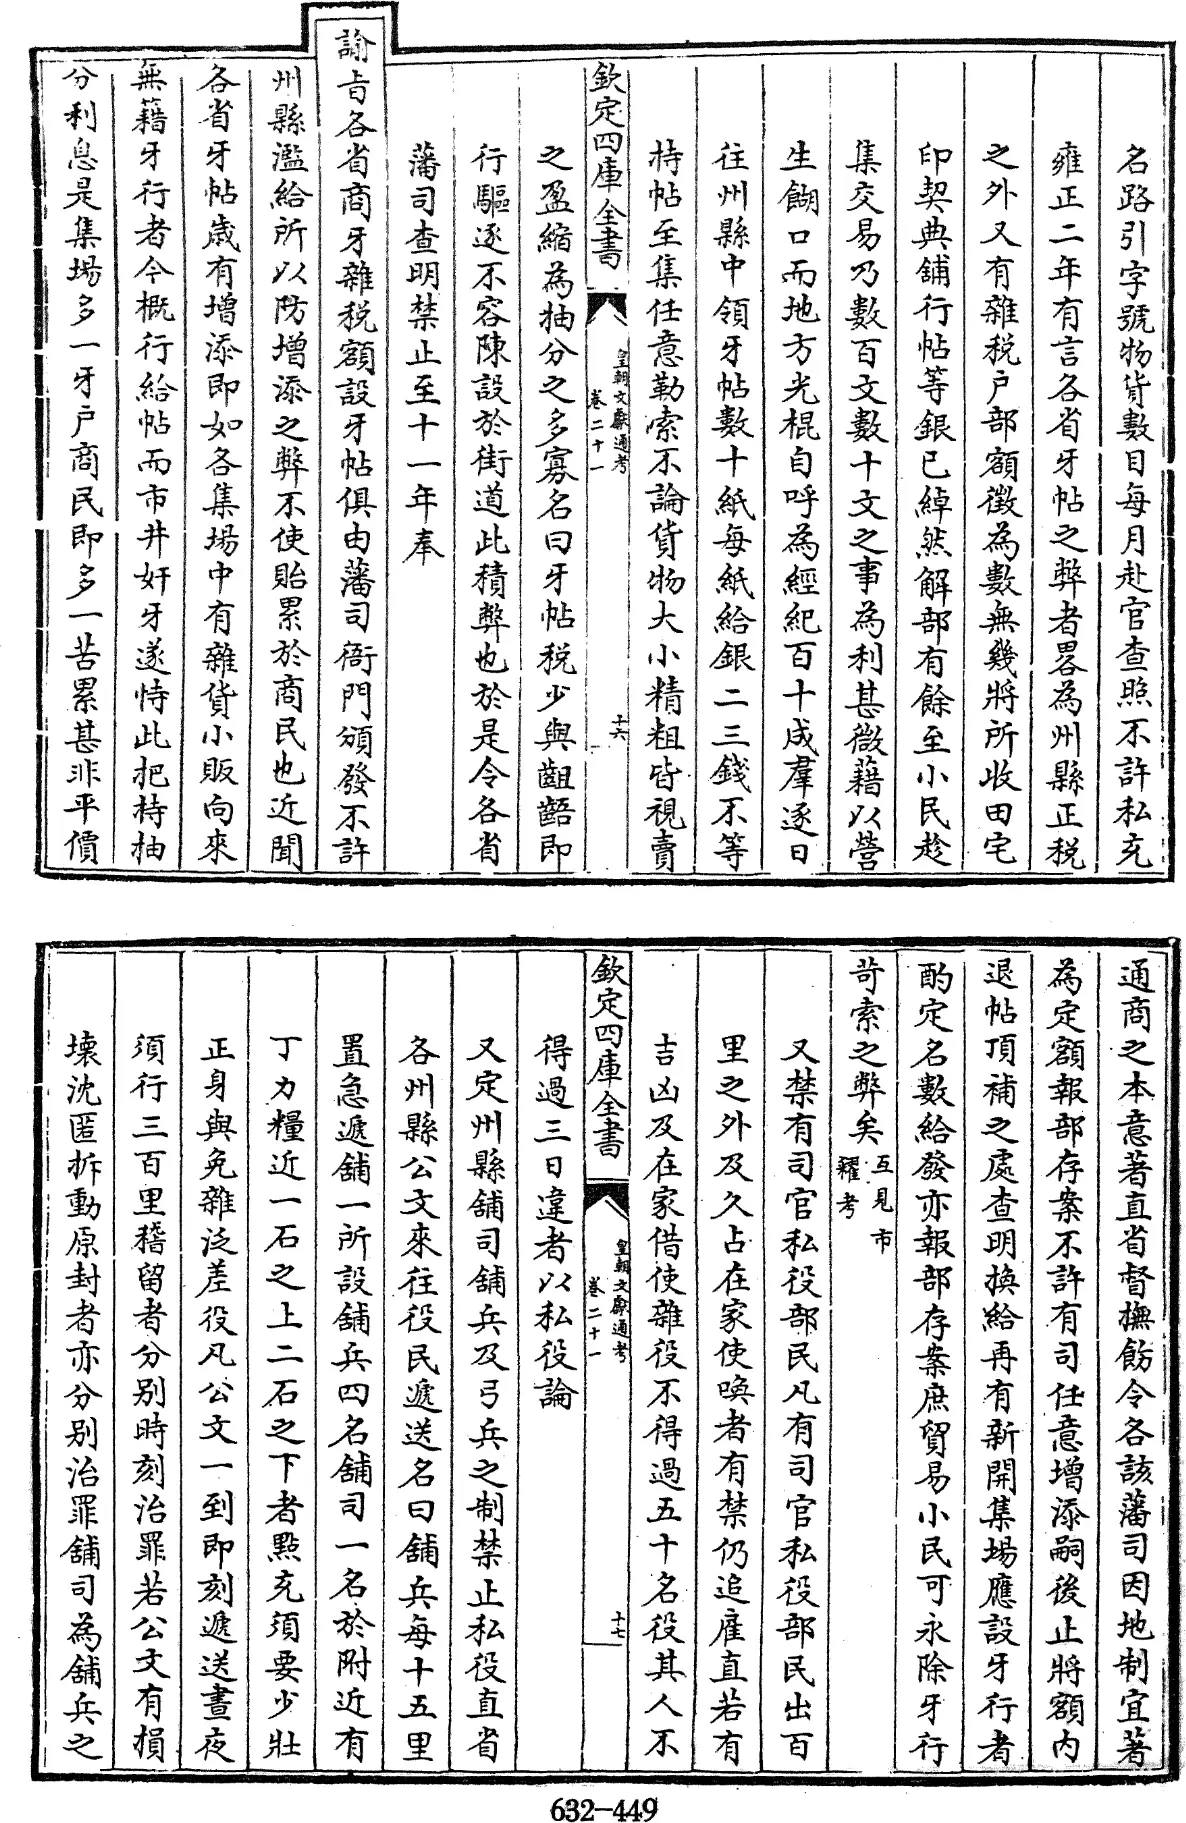 名路引字號物貨數目每月赴官查照不許私充
雍正二年有言各省牙帖之弊者畧為州縣正稅
之外又有雜稅户部額徵為數無幾將所收田宅
印契典鋪行帖等銀已綽然解部有餘至小民趁
集交易乃數百文數十文之事為利甚微藉以營
生餬口而地方光棍自呼為經紀百十成羣逐日
往州縣中領牙帖數十紙每紙給銀二三錢不等
持帖至集任意勒索不論貨物大小精粗皆視賣
欽定四庫全書
皇朝文獻通考
卷二十一
十六
之盈縮為抽分之多寡名曰牙帖稅少與齟齬即
行驅逐不容陳設於街道此積弊也於是令各省
藩司查明禁止至十一年奉
諭旨各省商牙雜稅額設牙帖俱由藩司衙門頒發不許
州縣濫給所以防增添之弊不使貽累於商民也近聞
各省牙帖歲有增添即如各集場中有雜貨小販向來
無藉牙行者今概行給帖而市井奸牙遂恃此把持抽
分利息是集場多一牙户商民即多一苦累甚非平價
通商之本意著直省督撫飭令各該藩司因地制宜著
為定額報部存案不許有司任意增添嗣後止將額內
退帖頂補之處查明換給再有新開集場應設牙行者
酌定名數給發亦報部存案庶貿易小民可永除牙行
苛索之弊矣互見市
糴考
又禁有司官私役部民凡有司官私役部民出百
里之外及久占在家使喚者有禁仍追雇直若有
吉凶及在家借使雜役不得過五十名役其人不
欽定四庫全書
皇朝文獻通考
卷二十一
十七
得過三日違者以私役論
又定州縣舖司舖兵及弓兵之制禁止私役直省
各州縣公文來往役民遞送名曰舖兵每十五里
置急遞舖一所設舖兵四名舖司一名於附近有
丁力糧近一石之上二石之下者點充須要少壯
正身與免雜泛差役凡公文一到即刻遞送晝夜
須行三百里稽留者分別時刻治罪若公文有損
壞沈匿拆動原封者亦分別治罪舖司為舖兵之
632-449